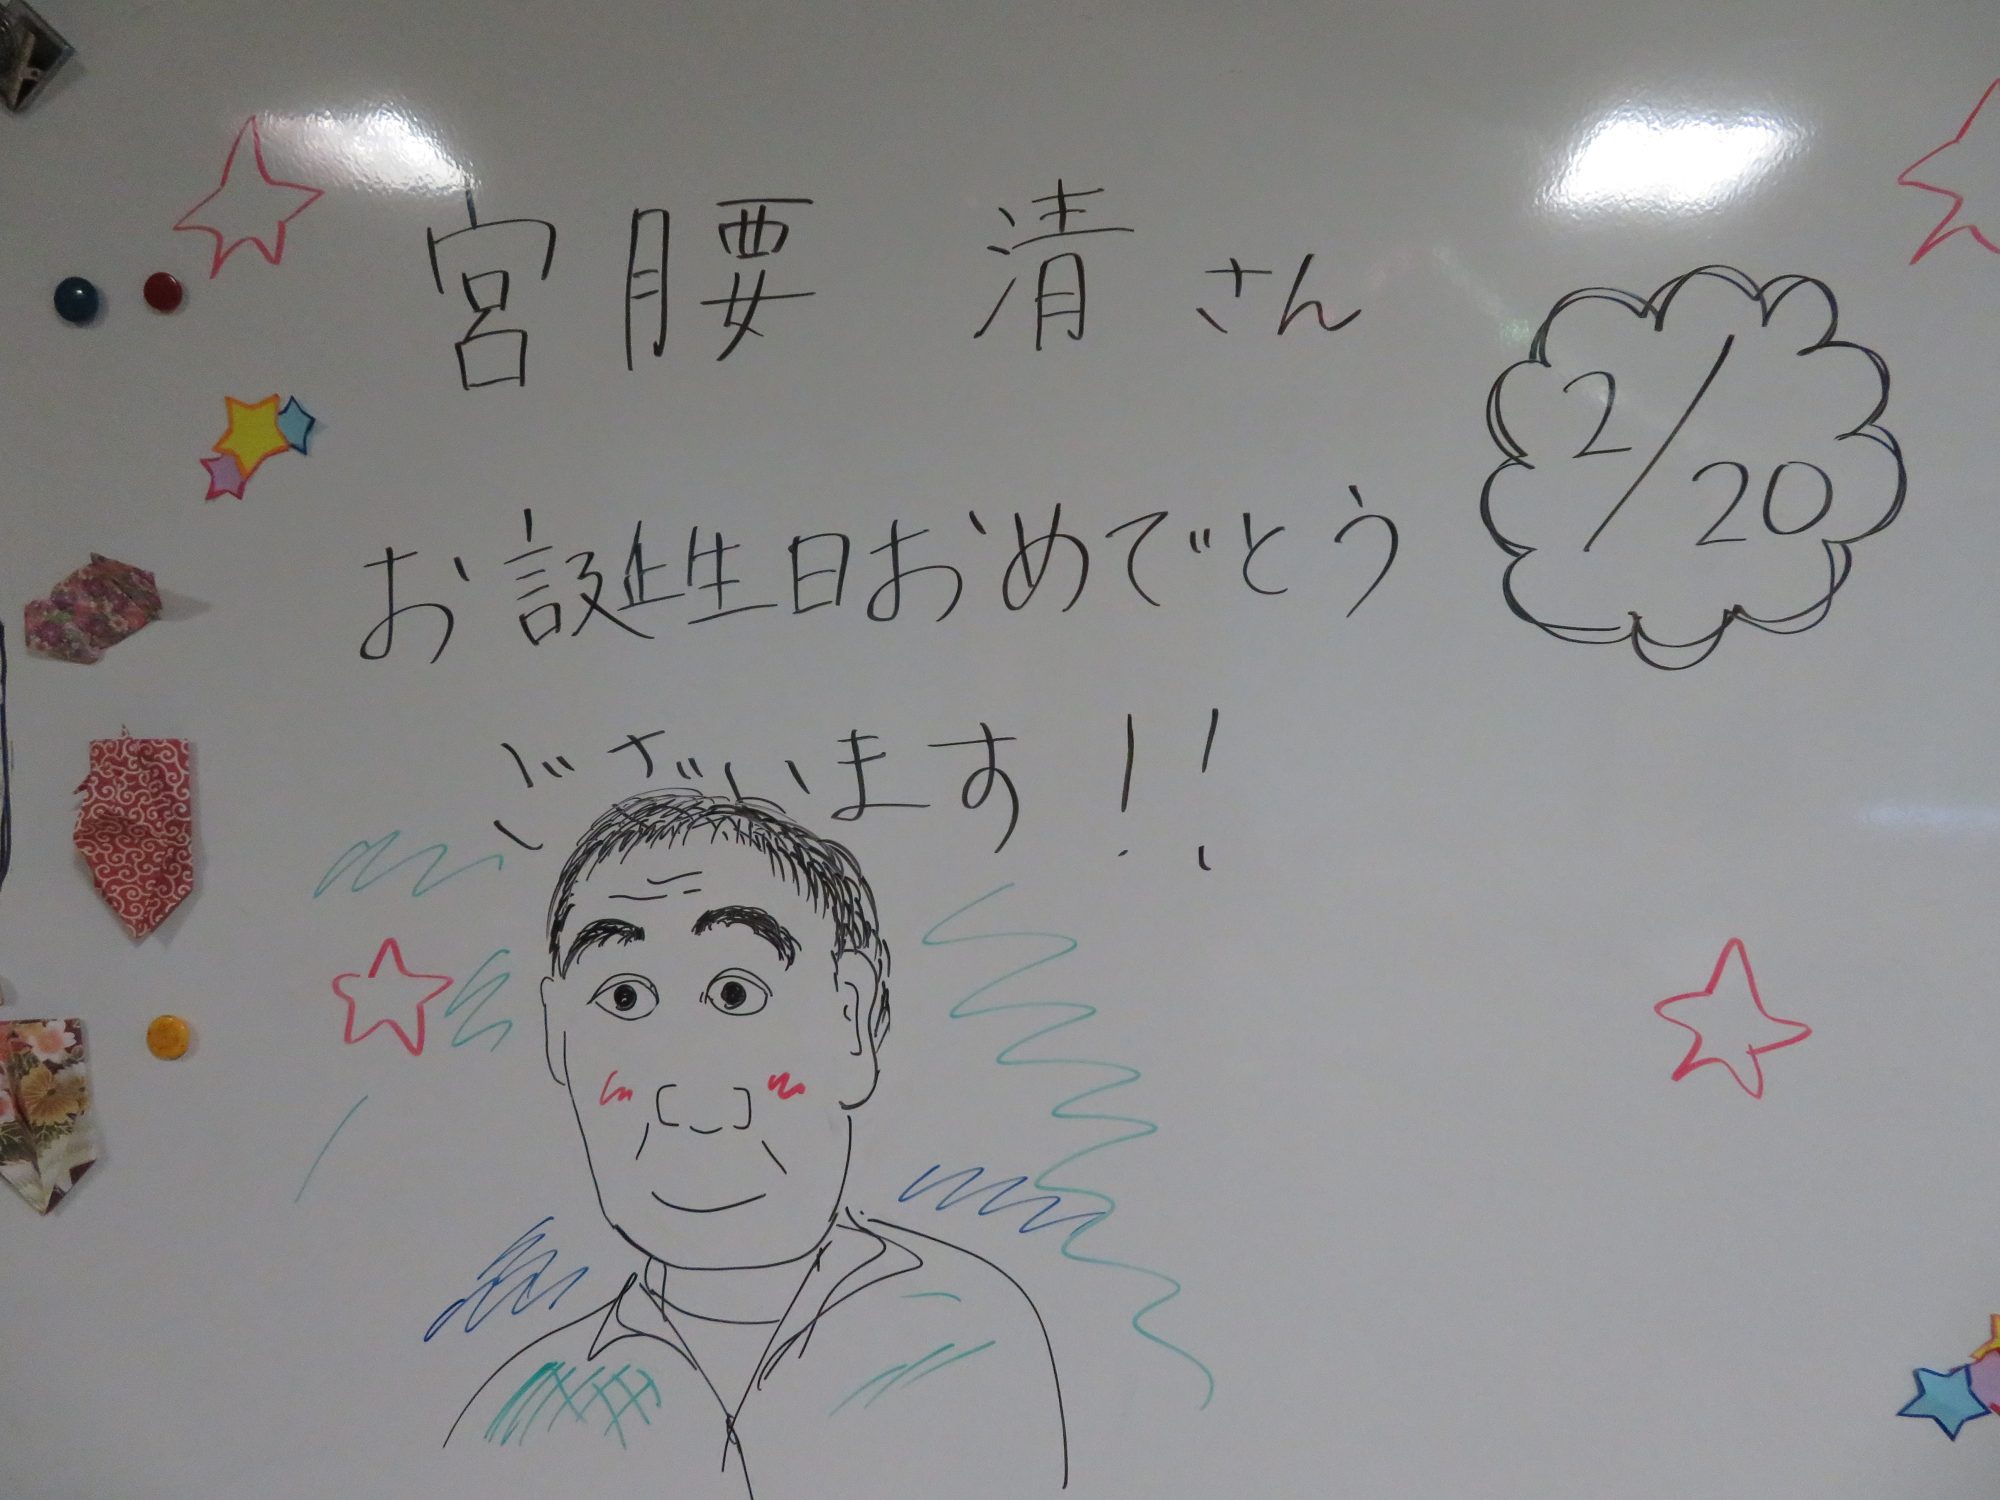 宮腰 清さん
2/20
お誕生日おめでとう
ございます!!